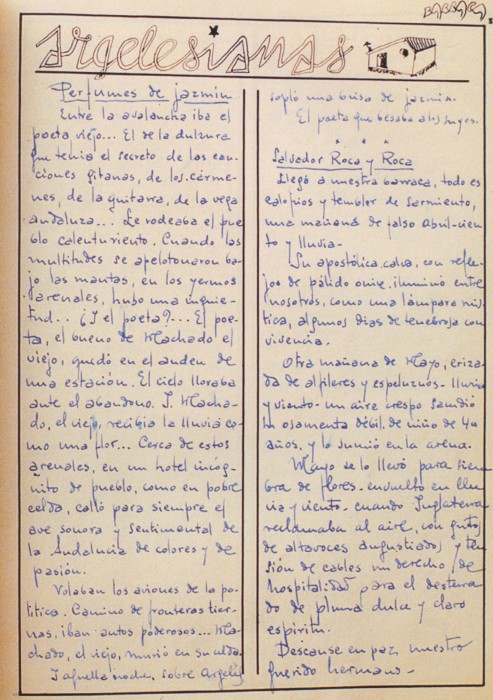 BARRACA
argelesianas
Perfumes de jazmín
Entre la avalancha iba el
poeta viejo... El de la dulzura
que tenía el secreto de las can-
ciones gitanas, de los cárme-
nes, de la guitarra, de la vega
andaluza... Le rodeaba el pue
blo calenturiento. Cuando las
multitudes se apelotonaron ba-
jo las mantas, en los yermos
arenales, hubo una inquie-
tud... ¿Y el poeta?... El poe-
ta, el bueno de Machado el
viejo, quedó en el anden de
una estación. El cielo lloraba
ante el abandono. Y Macha-
do, el viejo, recibía la lluvia co-
mo una flor... Cerca de estos
arenales, en un hotel incóg-
nito de pueblo, como en pobre
celda, calló para siempre el
ave sonora y sentimental de
la Andalucía de colores y de
pasión.
Volaban los aviones de la po-
lítica. Camino de fronteras tier-
nas, iban autos poderosos... Ma-
chado, el viejo, murió en su celda.
Y aquella noche, sobre Argelés
sopló una brisa de jazmín.
El poeta que besaba a los
Salvador Roca y Roca
Llegó a nuestra barraca, todo es
calofríos y temblor de sarmiento,
una mañana de falso Abril-vien-
to y lluvia-
Su apostólica calva, con refle-
jos de pálido onix, iluminó entre
nosotros, como una lámpara mís-
tica, algunos días de tenebrosa con
vivencia.
Otra mañana de Mayo, eriza-
da de alfileres y espeluznos- lluvia
y viento- un aire crespo sacudió
la osamenta débil, de niño de 40
años, y lo sumió en la arena.
Mayo se lo llevó para siem
bra de flores- envuelto en llu
via y viento- cuando Inglaterra
reclamaba al aire, con gritos
de altavoces angustiados y ten
sión de cables un derecho de
hospitalidad para el desterra
do de pluma dulce y claro
espíritu.
Descanse en paz, nuestro
querido hermano-